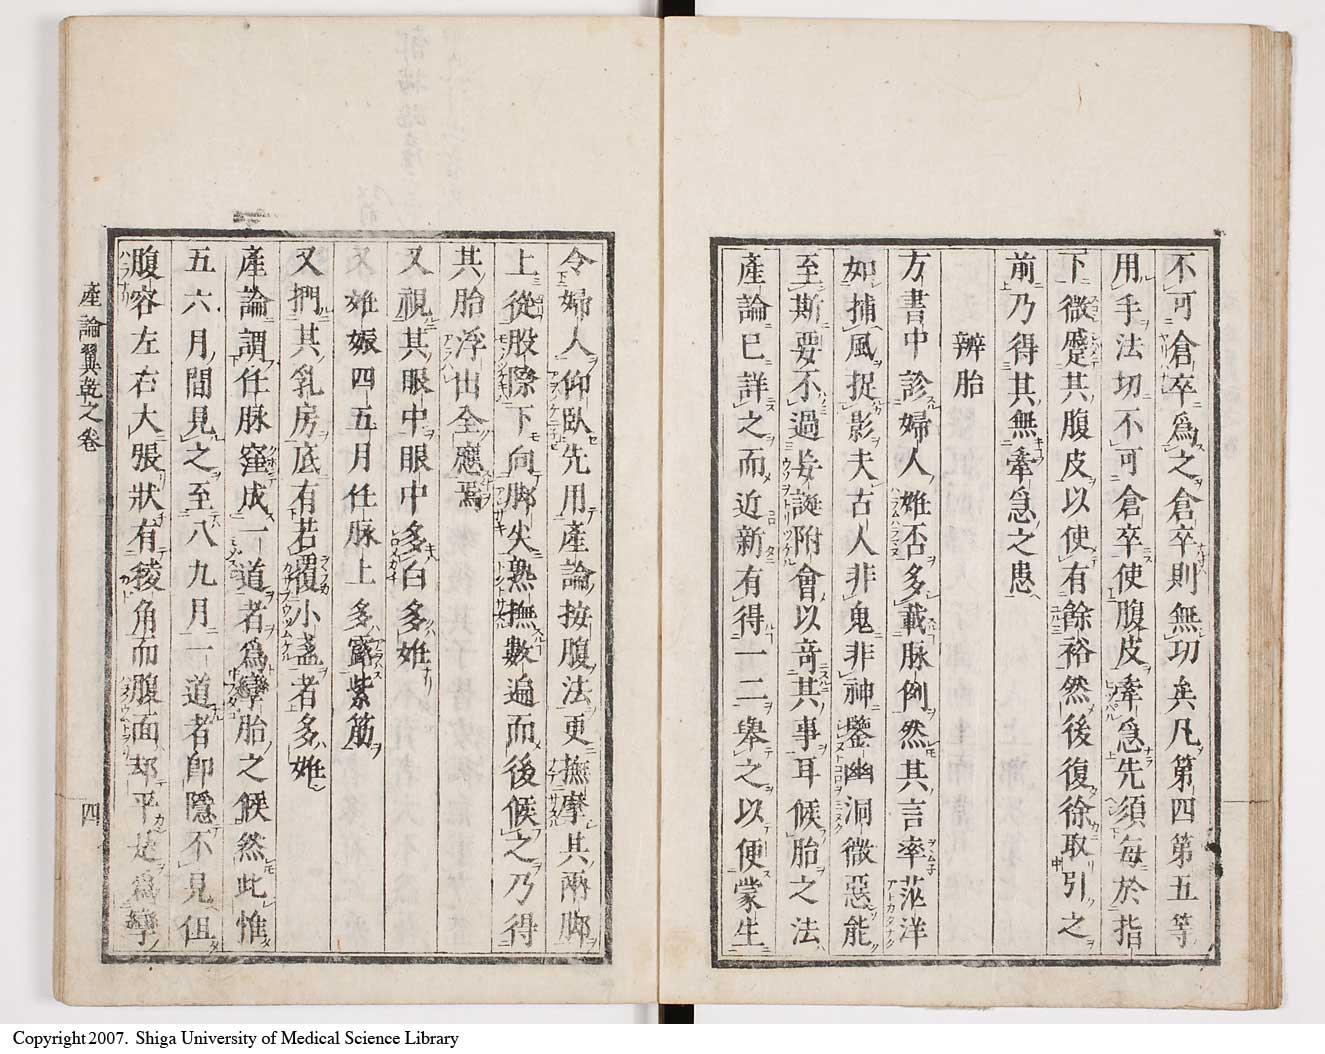 不可倉卒爲之倉卒則無功矣凡第四第五等
用手法切不可倉卒使腹皮牽急先須每於指
下微蹙其腹皮以使有餘裕然後復徐取引之
前乃得其無牽急之患
辨胎
方書中診婦人妊否多載脉例然其言率茫洋
如捕風捉影夫古人非鬼非神鑒幽洞微惡能
至斯要不過妄誕附會以奇其事耳候胎之法
產論已詳之而近新有得一二舉之以便蒙生
令婦人仰臥先用產論按腹法更撫摩其兩脚
上從股際下向脚尖熟撫數遍而後候之乃得
其胎浮出全應焉
又視其眼中眼中多白多妊
又妊娠四五月任脉上多露紫筋
又捫其乳房底有若覆小盞者多妊
產論謂任脉窪成一道者爲孿胎之候然此惟
五六月間見之至八九月一道者即隱不見但
腹容左右大張狀有稜角而腹面却平是爲孿
產論翼乾之卷
四
Copyright 2007. Shiga University of Medical Science Library